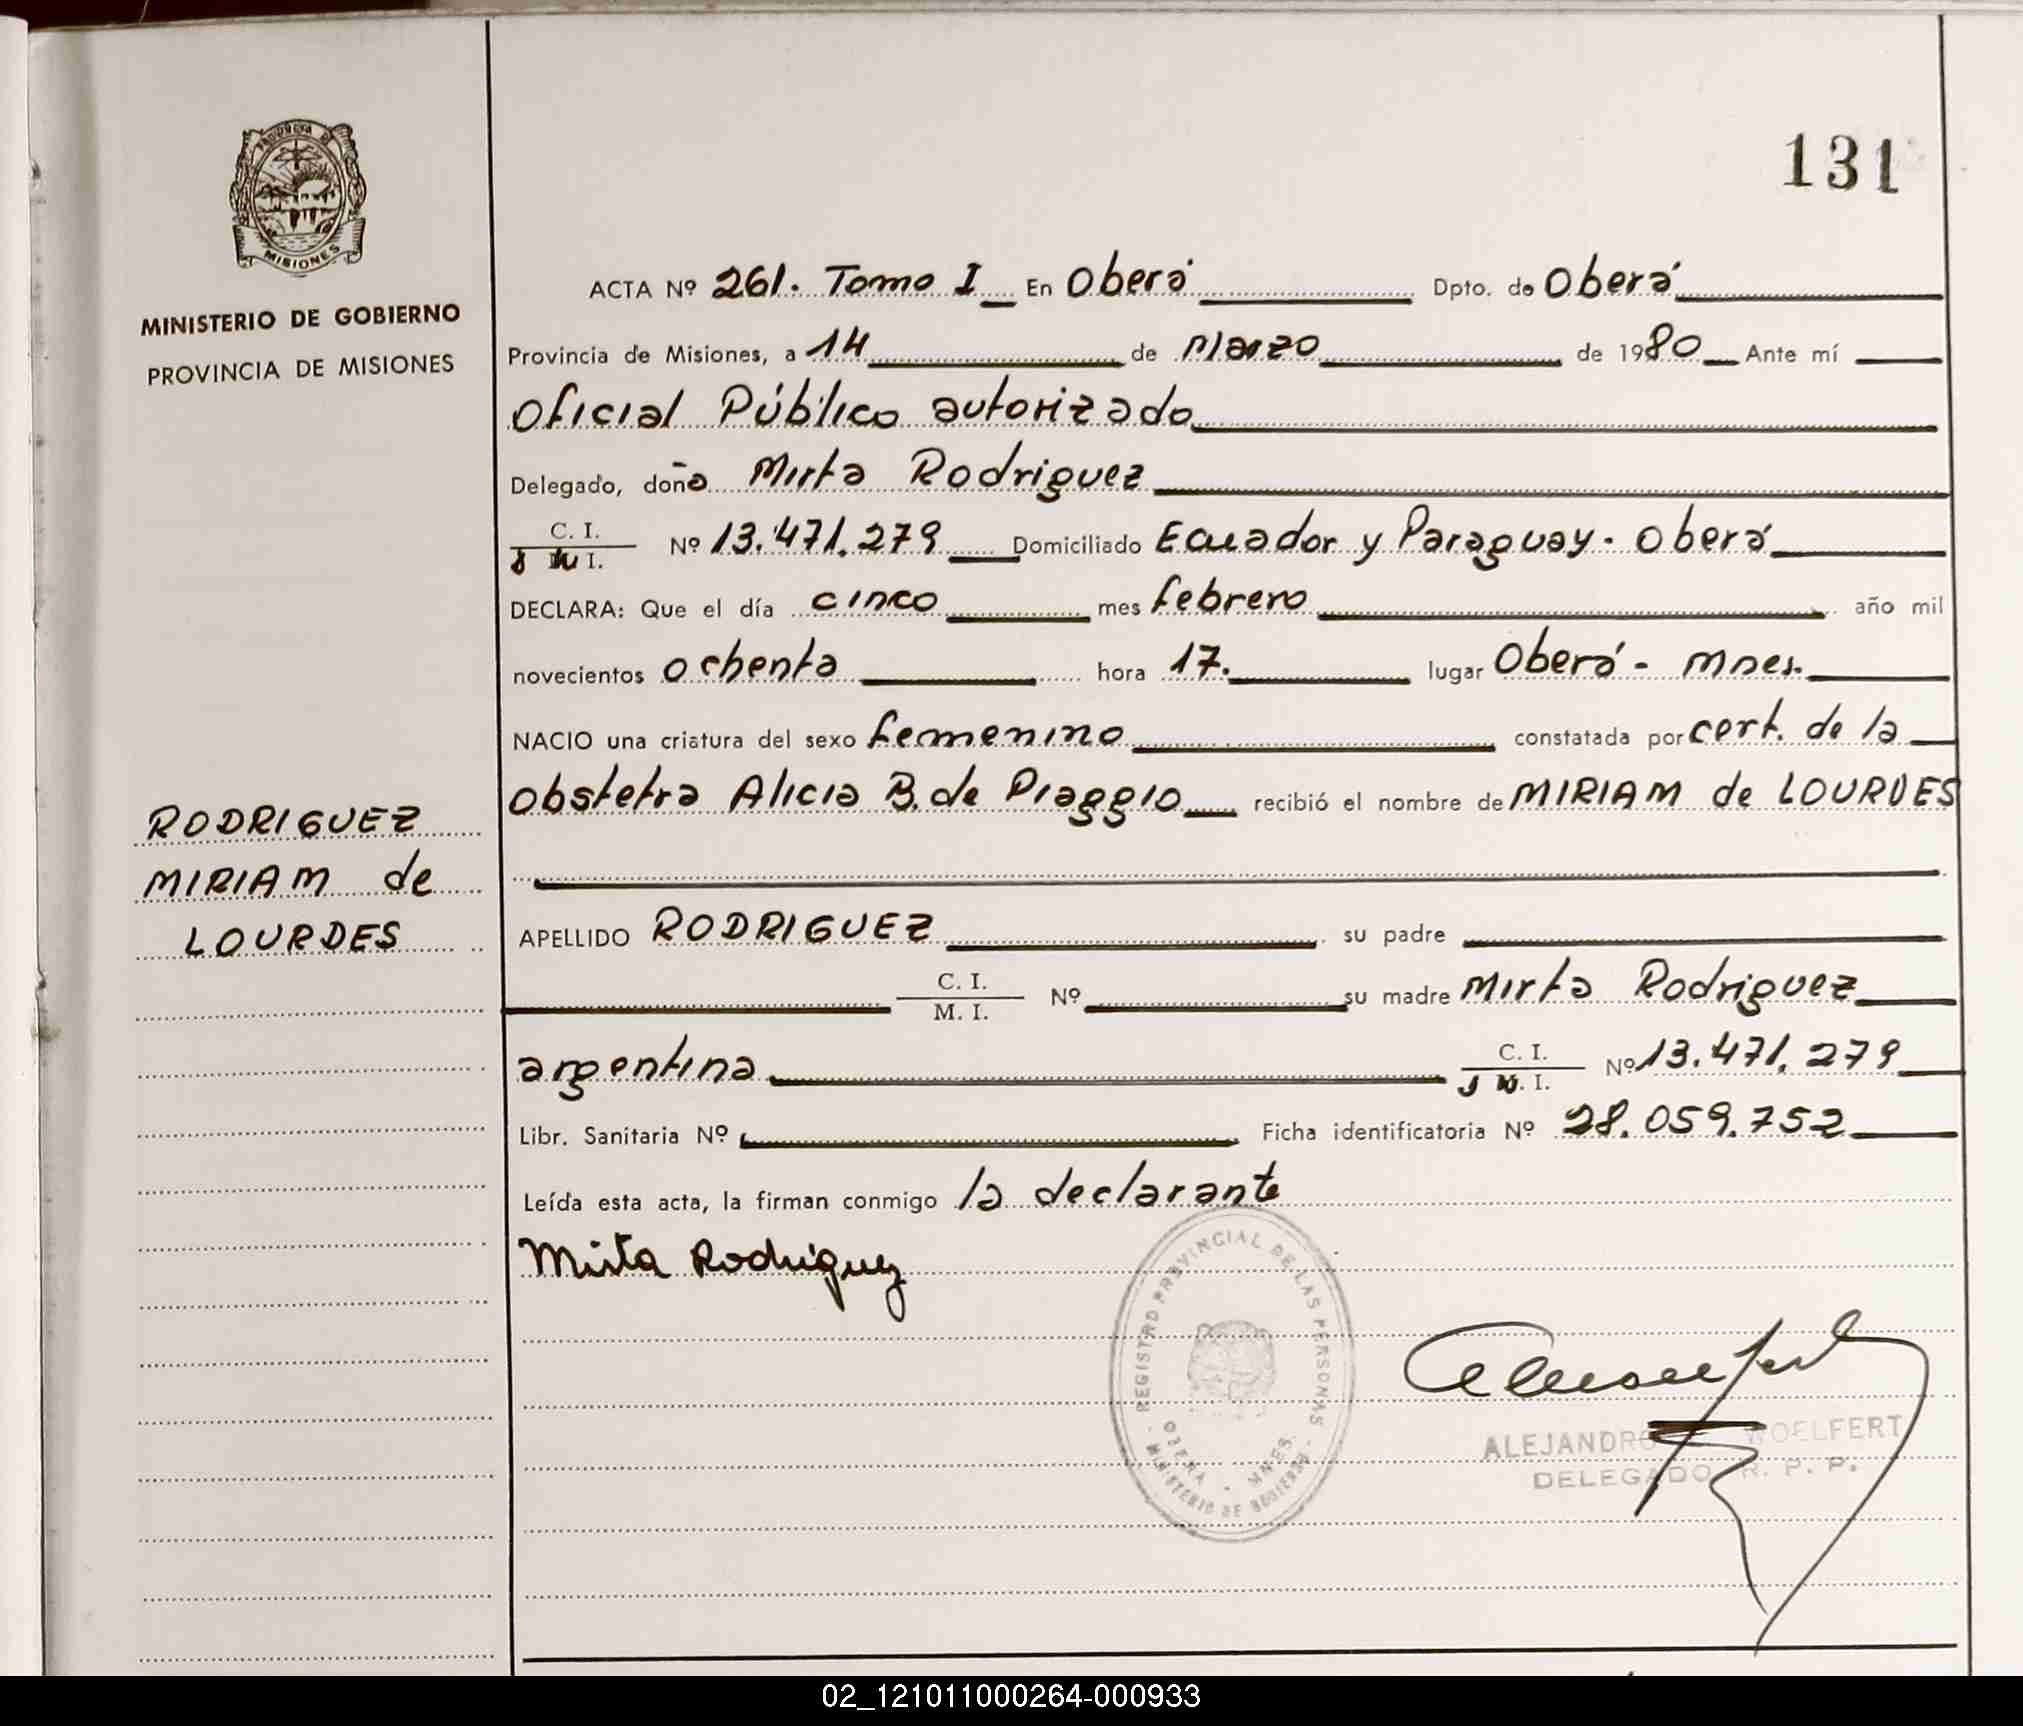 131
PROVINCIA DE
MISIONES
MINISTERIO DE GOBIERNO
PROVINCIA DE MISIONES
RODRIGUEZ
MIRIAM de
LOURDES
ACTA Nº 261. Tomo I En Oberá Dpto. de Oberá
Provincia de Misiones, a 14 de Marzo de 1980 Ante mí
Oficial Público autorizado
Delegado, doña Mirta Rodriguez
C. I.
M. I. Nº 13.471.279 Domiciliado Ecuador y Paraguay. Oberá
DECLARA: Que el día cinco mes febrero año mil
novecientos ochenta hora 17. lugar Oberá - Mnes.
NACIO una criatura del sexo femenino constatada por cert. de la
obstetra Alicia B. de Piaggio recibió el nombre de MIRIAM de LOURDES
APELLIDO RODRIGUEZ su padre
C. I.
M. I. Nº su madre Mirta Rodriguez
argentina C. I.
M. I. Nº 13.471.279
Libr. Sanitaria Nº Ficha identificatoria Nº 28.059.752
Leída esta acta, la firman conmigo la declarante
Mirta Rodriguez
REGISTRO PROVINCIAL DE LAS PERSONAS
OBERA - MNES.
MINISTERIO DE GOBIERNO
ALEJANDRO WOELFERT
DELEGADO R. P. P.
02_121011000264-000933